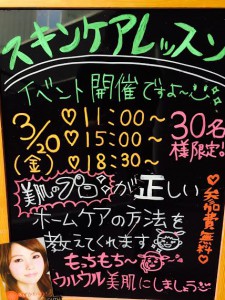 スキンケアレッスン
イベント開催ですよ〜
3/20(金)
♡11:00〜
♡15:00〜
♡18:30〜
30名様限定!
美肌のプロが正しい
ホームケアの方法を
教えてくれます
もっちもち〜
ウルウル美肌にしましょう
♡参加費無料♡